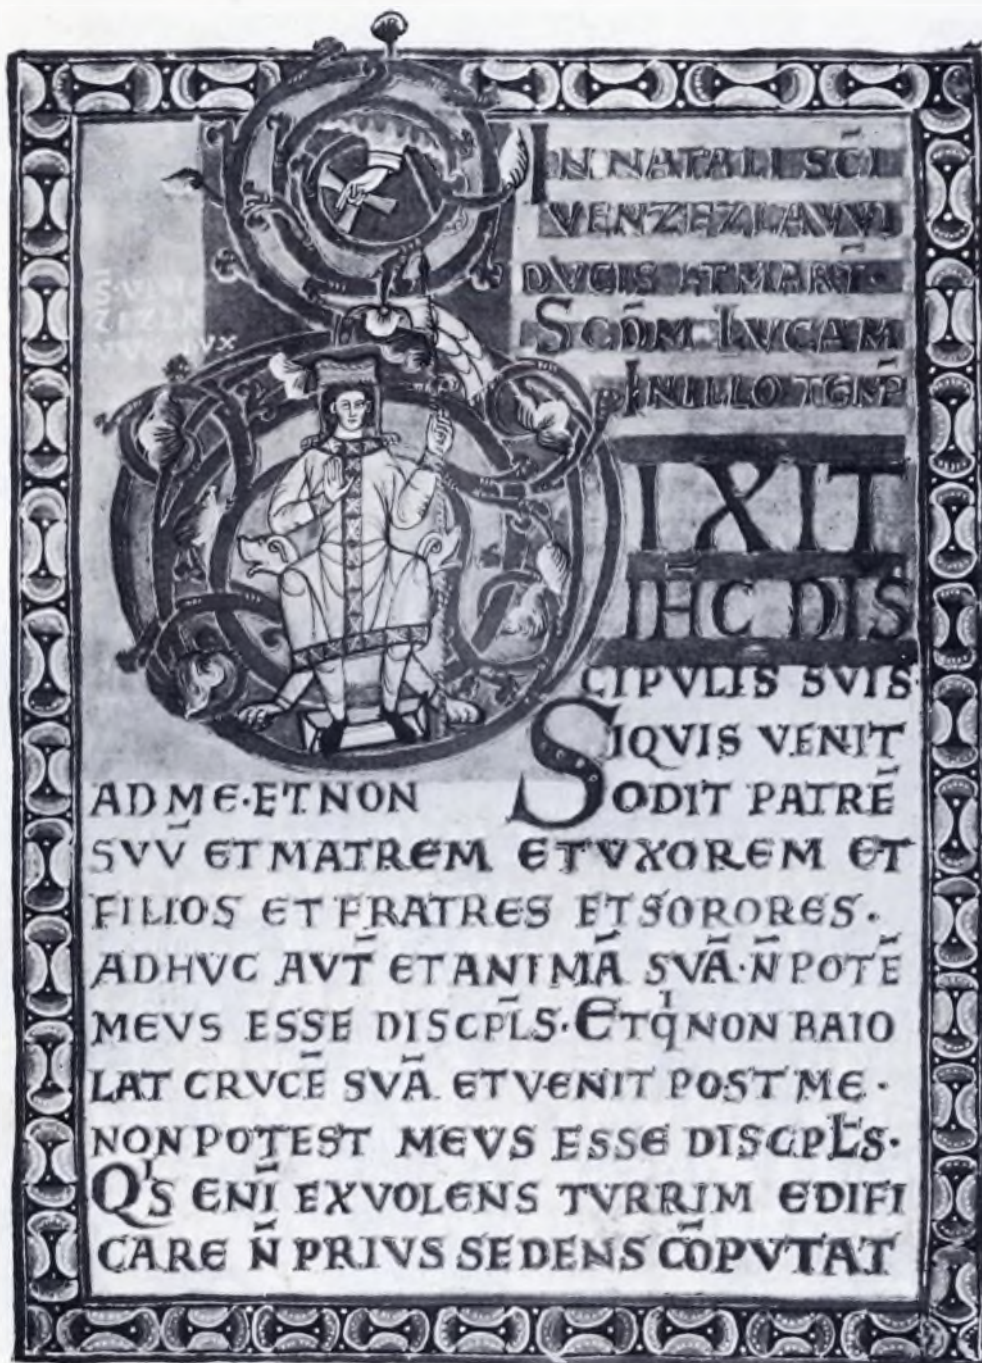 IN NATALI SC̄I
VENZEZLAVVI
DVCIS ET MART̄·
SCD̄M LVCAM
IN ILLO TEMP̄
DIXIT
IH̄C DIS
CIPVLIS SVIS·
SIQVIS VENIT
AD ME·ET NON ODIT PATRĒ
SVV̄ ET MATREM ET VXOREM ET
FILIOS ET FRATRES ET SORORES·
ADHVC AVT̄ ET ANIMĀ SVĀ·N̄ POTĒ
MEVS ESSE DISCPL̄S·ET QͥNON BAIO
LAT CRVCĒ SVĀ ET VENIT POST ME·
NON POTEST MEVS ESSE DISCPL̄S·
QͥS ENĪ EX VOLENS TVRRIM EDIFI
CARE N̄ PRIVS SEDENS CŌPVTAT